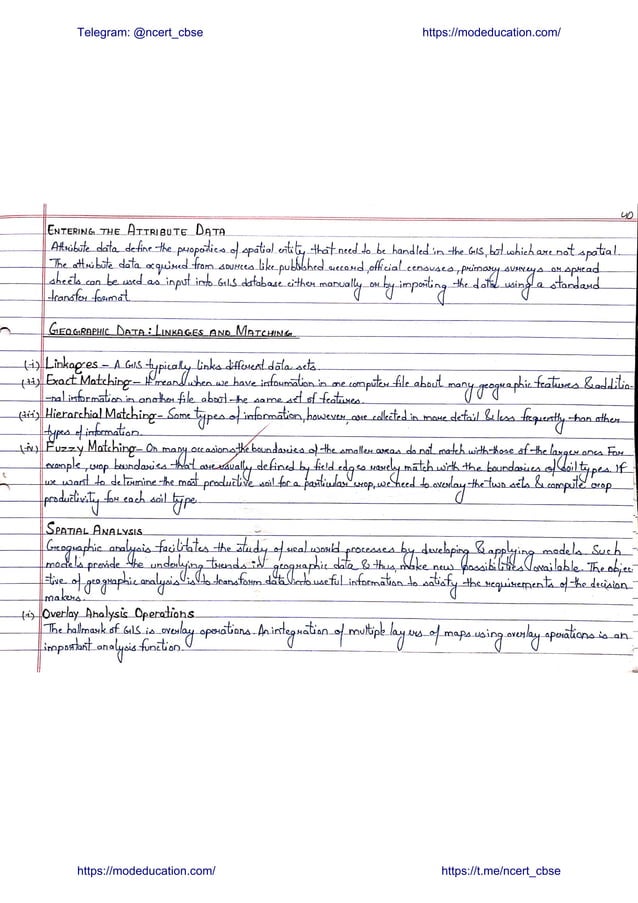 Telegram: @ncert_cbse
https://modeducation.com/
40
ENTERING THE ATTRIBUTE DATA
Attribute data define the properties of spatial entity that need to be handled in the GIS, but which are not spatial.
The attribute data acquired from sources like published record, official censuses, primary surveys or spread
sheets can be used as input into GIS database either manually or by importing the data using a standard
transfer format.
GEOGRAPHIC DATA: LINKAGES AND MATCHING
(i) Linkages – A GIS typically links different data sets.
(ii) Exact Matching – It means when we have information in one computer file about many geographic features & additio-
-nal information in another file about the same set of features.
(iii) Hierarchial Matching – Some types of information, however, are collected in more detail & less frequently than other
types of information.
(iv) Fuzzy Matching – On many occasions the boundaries of the smaller areas do not match with those of the larger ones. For
example, crop boundaries that are usually defined by field edges rarely match with the boundaries of soil types. If
we want to determine the most productive soil for a particular crop, we need to overlay the two sets & compute crop
productivity for each soil type.
SPATIAL ANALYSIS
Geographic analysis facilitates the study of real world processes by developing & applying models. Such
models provide the underlying trends in geographic data & thus, make new possibilities available. The objec-
-tive of geographic analysis is to transform data into useful information to satisfy the requirements of the decision
makers.
(i) Overlay Analysis Operations
The hallmark of GIS is overlay operations. An integration of multiple layers of maps using overlay operations is an
important analysis function.
https://modeducation.com/
https://t.me/ncert_cbse